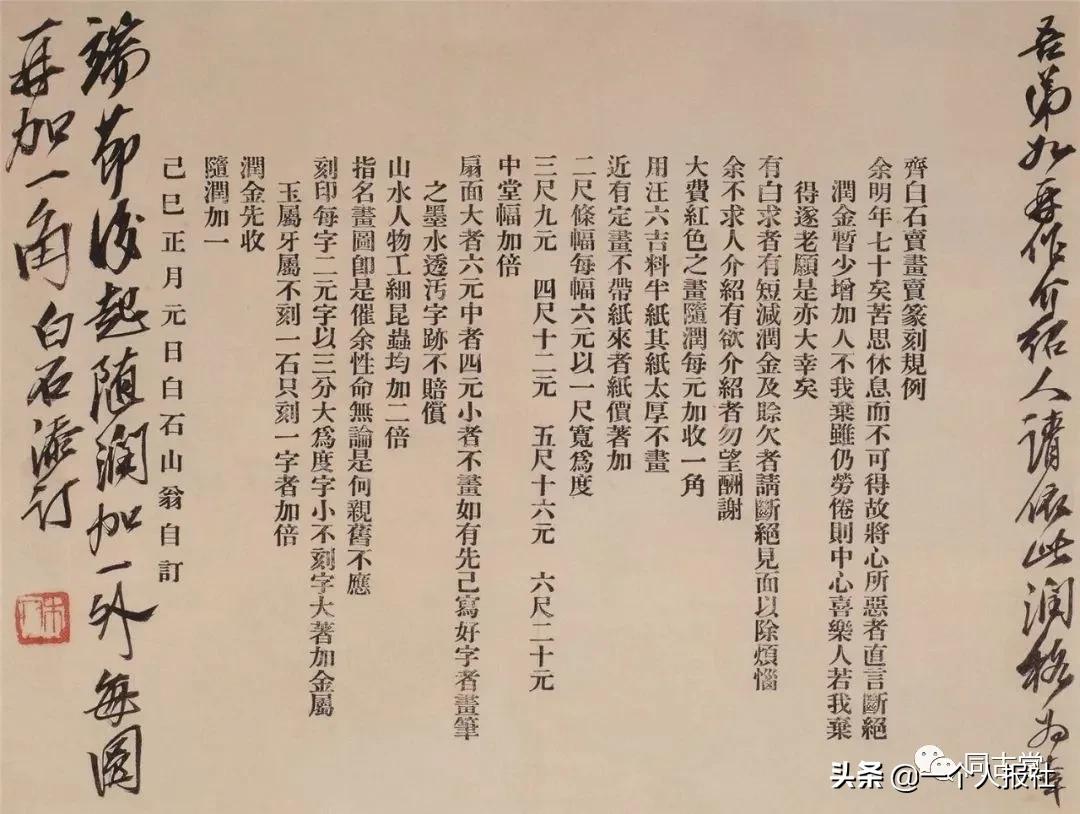 吾弟如再作介绍人請依此潤格為幸
齊白石賣畫賣篆刻規例
余明年七十矣苦思休息而不可得故將心所惡者直言斷絕
潤金暫少增加人不我棄雖仍勞倦則中心喜樂人若我棄
得遂老願是亦大幸矣
有白求者有短減潤金及賒欠者請斷絕見面以除煩惱
余不求人介紹有欲介紹者勿望酬謝
大費紅色之畫隨潤每元加收一角
用汪六吉料半紙其紙太厚不畫
近有定畫不帶紙來者紙價著加
二尺條幅每幅六元以一尺寬爲度
三尺九元 四尺十二元 五尺十六元 六尺二十元
中堂幅加倍
扇面大者六元中者四元小者不畫如有先己寫好字者畫筆
之墨水透污字跡不賠償
山水人物工細昆蟲均加二倍
指名畫圖卽是催余性命無論是何親舊不應
刻印每字二元字以三分大爲度字小不刻字大著加金屬
玉屬牙屬不刻一石只刻一字者加倍
潤金先收
隨潤加一
己巳正月元日白石山翁自訂
端節後起随潤加一外每圓
再加一角 白石添訂
头条 @一个人报社